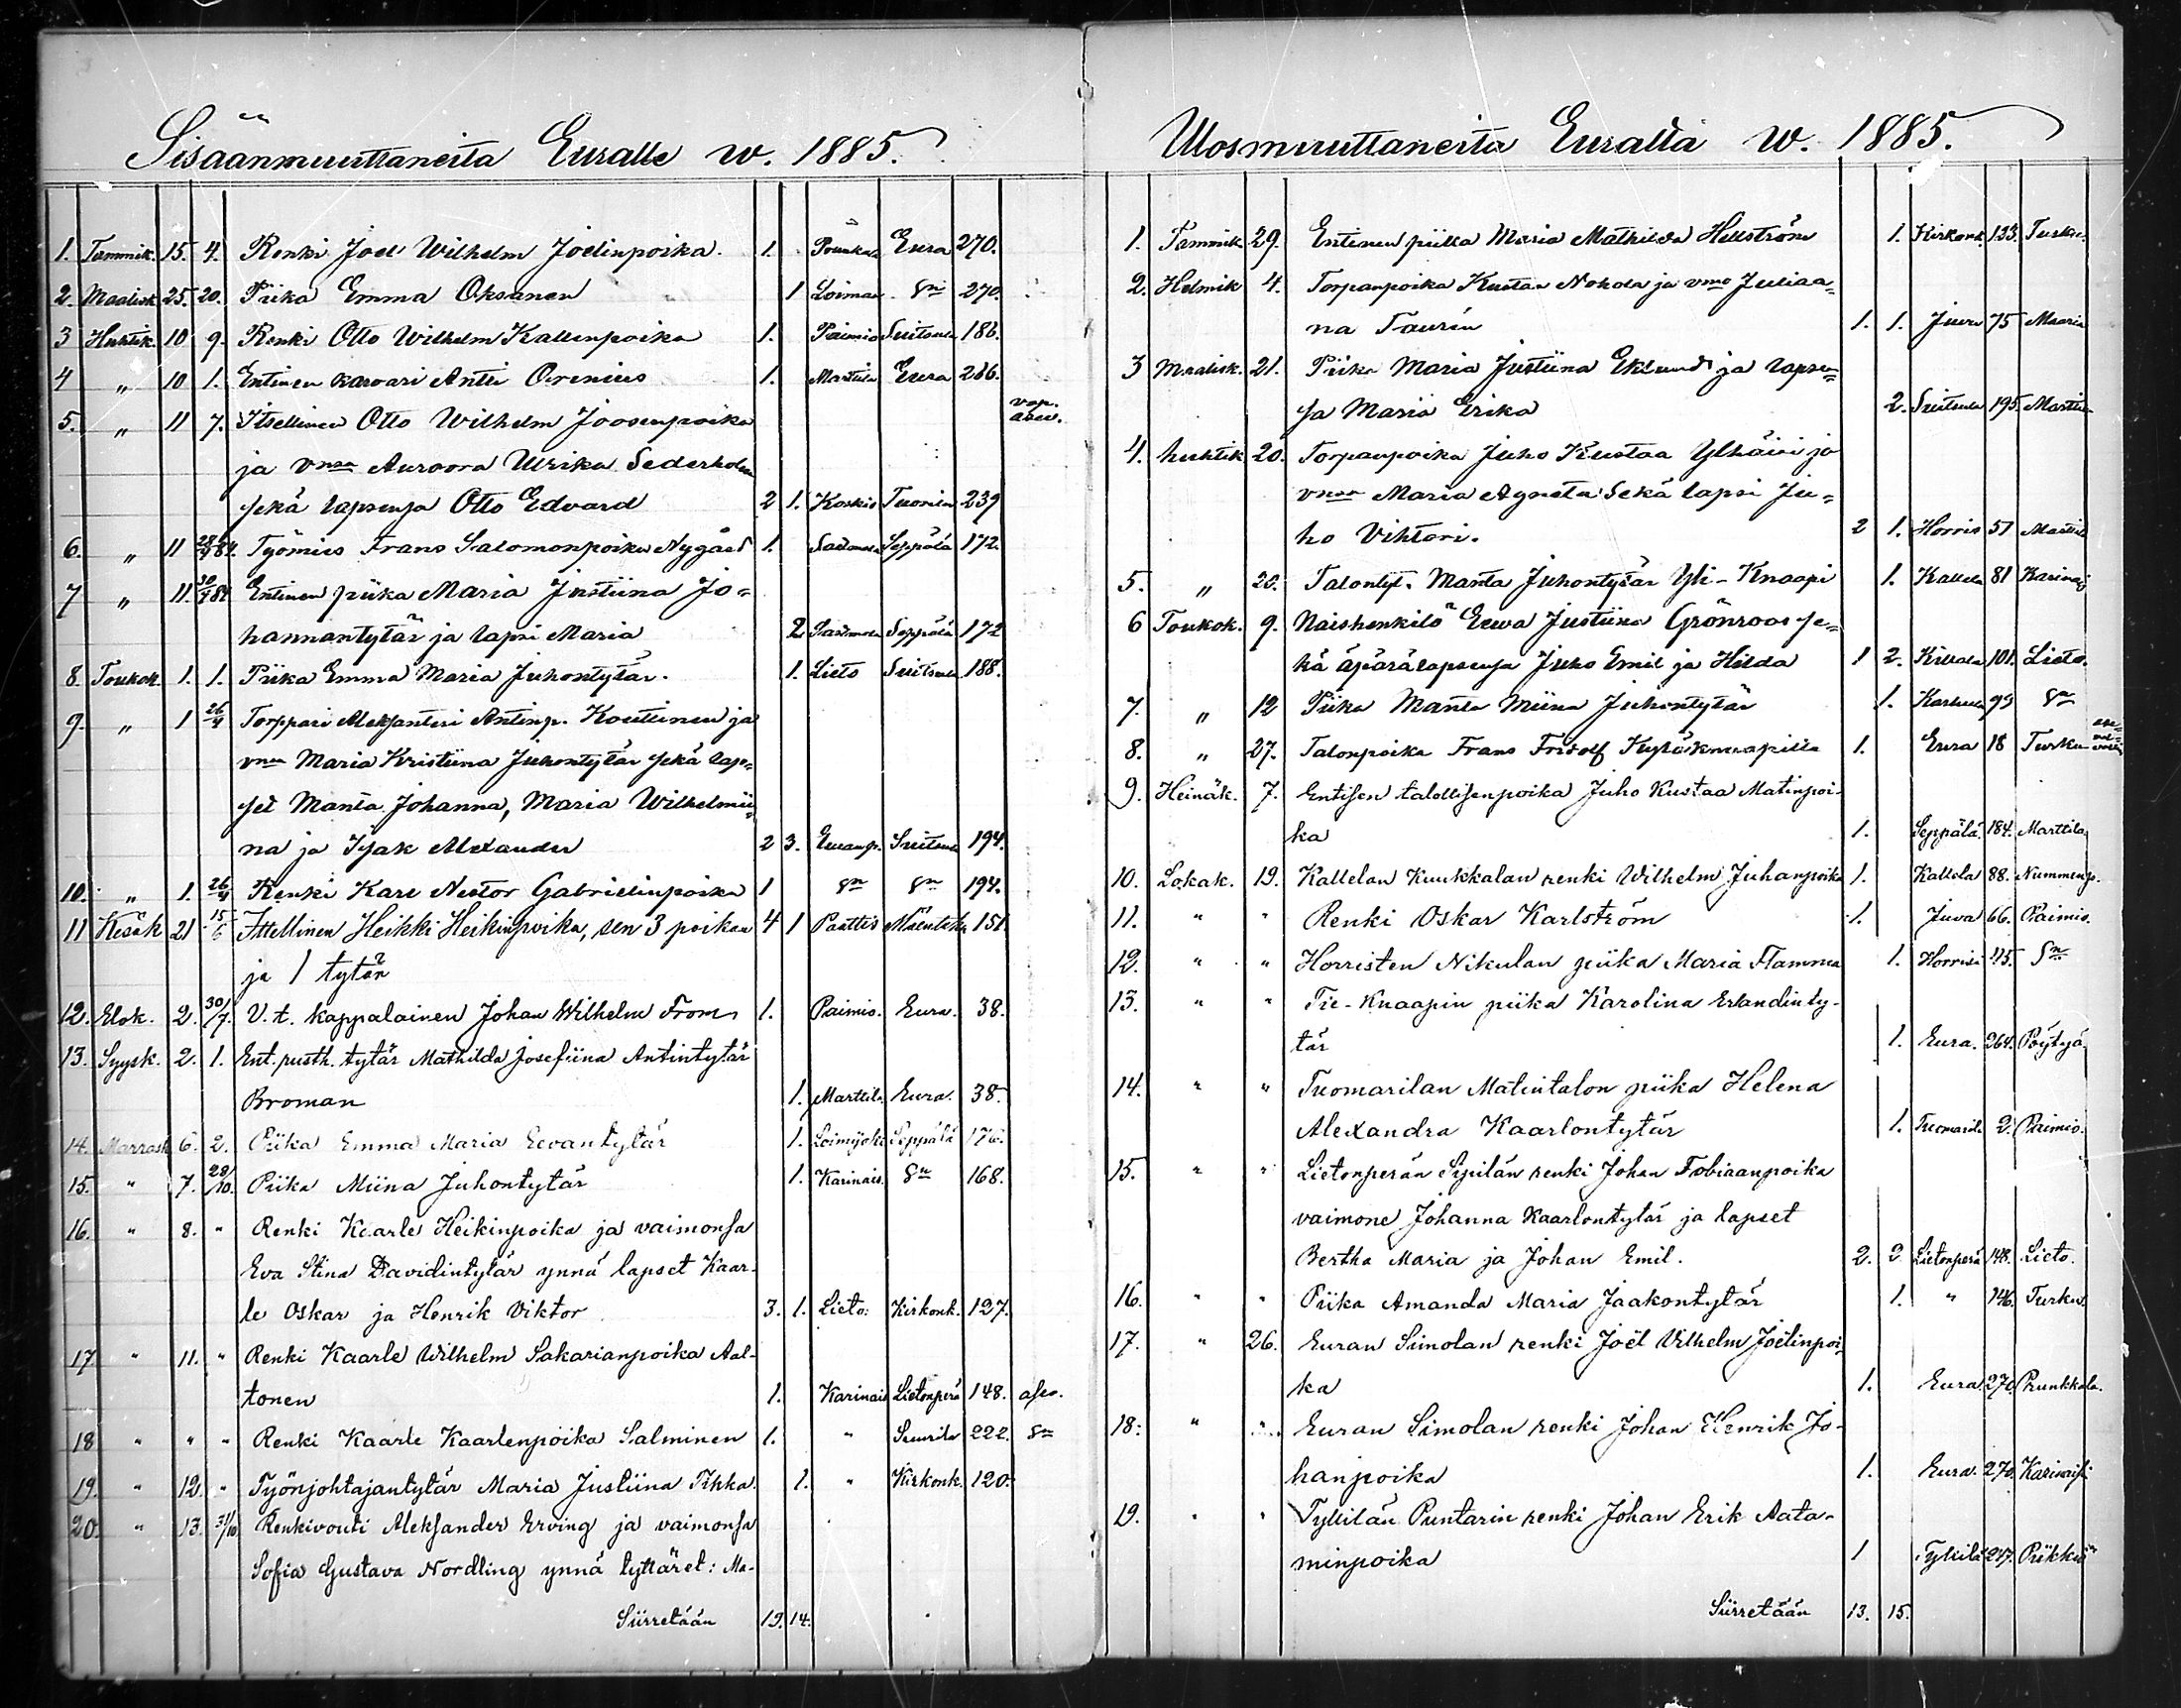 Sisäänmuuttaneita Euralle w. 1885.
1. Tammik. 15. 4. Renki Joel Wilhelm Joelinpoika. 1. Eura 270.
2. Maalisk 25. 20. Piika Emma Oksanen 1 Loimaa Sn 270.
3 Huhtik. 10 9. Renki Otto Wilhelm Kallenpoika 1. Paimio Suitsula 186.
4 " 10 1. Entinen karvari Antti Orenius 1. Marttila Eura 286.
5. " 11 7. Itsellinen Otto Wilhelm Joosenpoika
ja vmsa Auroora Ulrika Sederholm
sekä lapsensa Otto Edvard 2 1. Koskis Tuorila 239
6. " 11 28/9 84. Työmies Frans Salomonpoika Nygård 1. Seppälä 172.
7 " 11. 30/9 84 Entinen piika Maria Justiina Jo=
hannantytär ja lapsi Maria 2 Seppälä 172
8. Toukok. 1. 1. Piika Emma Maria Juhontytär. 1. Lieto Suitsula 188.
9. " 1 26/4 Torppari Aleksanteri Antinp. Kouttinen ja
vmsa Maria Kristiina Juhontytär sekä lap=
set Manta Johanna, Maria Wilhelmii=
na ja Isak Alexander 2 3. Suitsula 194.
10. " 1. 26/4 Renki Karl Nestor Gabrielinpoika 1 Sn Sn 194.
11 Kesäk 21 15/6 Ittellinen Heikki Heikinpoika, sen 3 poikaa 4 1 Paattis 151.
ja 1 tytär
12. Elok. 2. 30/7. V. t. kappalainen Johan Wilhelm From 1. Paimio. Eura. 38.
13. Syysk. 2. 1. Ent. rusth. tytär Mathilda Josefiina Antintytär
Broman 1. Marttila Eura. 38.
14. Marrask 6. 2. Piika Emma Maria Eevantytär 1. Loimijoki Seppälä 176.
15. " 7. 28/10. Piika Miina Juhontytär 1. Karinais. Sn 168.
16. " 8. " Renki Kaarle Heikinpoika ja vaimonsa
Eva Stina Davidintytär ynnä lapset Kaar-
le Oskar ja Henrik Viktor 3. 1. Lieto. Kirkonk. 127.
17 " 11. " Renki Kaarle Wilhelm Sakarianpoika Aal-
tonen 1. Karinais Lietonperä 148.
18 " " " Renki Kaarle Kaarlenpoika Salminen 1. " Suurila 222. Sn
19. " 12. " Työnjohtajantytär Maria Justiina Pihka. 1. " Kirkonk. 120.
20. " 13. 31/10 Renkivouti Aleksander Erving ja vaimonsa
Sofia Gustava Nordling ynnä tyttäret: Ma-
Siirretään 19. 14.
Ulosmuuttaneita Euralta w. 1885.
1. Tammik 29. Entinen piika Maria Mathilda Hellström 1. Kirkonk. 133. Turku.
2. Helmik 4. Torpanpoika Kustaa Nokola ja vmo Juliaa=
na Taurén 1. 1. Juva 75 Maaria
3 Maalisk. 21. Piika Maria Justiina Eklund ja lapsen=
sa Maria Erika 2. Suitsula 195. Marttila
4. huhtik 20. Torpanpoika Juho Kustaa Ylhäisi ja
vmsa Maria Agneta sekä lapsi Ju=
ho Vihtori. 2 1. Horris 51 Marttila
5. " 20. Talontyt. Manta Juhontytär Yli-Knaapi 1. Kallela 81 Karinais
6 Toukok. 9. Naishenkilö Eewa Justiina Grönroos se=
kä äpärälapsensa Juho Emil ja Hilda 1 2. Killala 101. Lieto.
7. " 12 Piika Manta Miina Juhontytär 1. Karhula 99 Sn
8. " 27. Talonpoika Frans Fridolf 1. Eura 18 Turku
9. Heinäk. 7. Entisen talollisenpoika Juho Kustaa Matinpoi-
ka 1. Seppälä 184. Marttila
10. Lokak. 19. Kallelan Kuukkalan renki Wilhelm Juhanpoika 1. Kallela 88. Nummenp.
11. " " Renki Oskar Karlström 1. Juva 66. Paimio.
12. " " Horristen Nikulan piika Maria Flamma 1. Horrisi 45. Sn
13. " " Tie-Knaapin piika Karolina Erlandinty-
tär 1. Eura. 264. Pöytyä.
14. " " Tuomarilan Matintalon piika Helena
Alexandra Kaarlontytär 1. Tuomarila 2. Paimio.
15. " " Lietonperän Sipilän renki Johan Tobiaanpoika
vaimone Johanna Kaarlontytär ja lapset
Bertha Maria ja Johan Emil. 2. 2 Lietonperä 148. Lieto.
16. " " Piika Amanda Maria Jaakontytär 1. " 146. Turku.
17. " 26. Euran Simolan renki Joël Vilhelm Joëlinpoi-
ka 1. Eura. 270. Prunkkala.
18. " " Euran Simolan renki Johan Henrik Jo-
hanpoika 1. Eura. 270. Karinaisi
19. " " Tyllilän Puntarin renki Johan Erik Aata-
minpoika 1 Tyllilä 247. Piikkiö
Siirretään 13. 15.